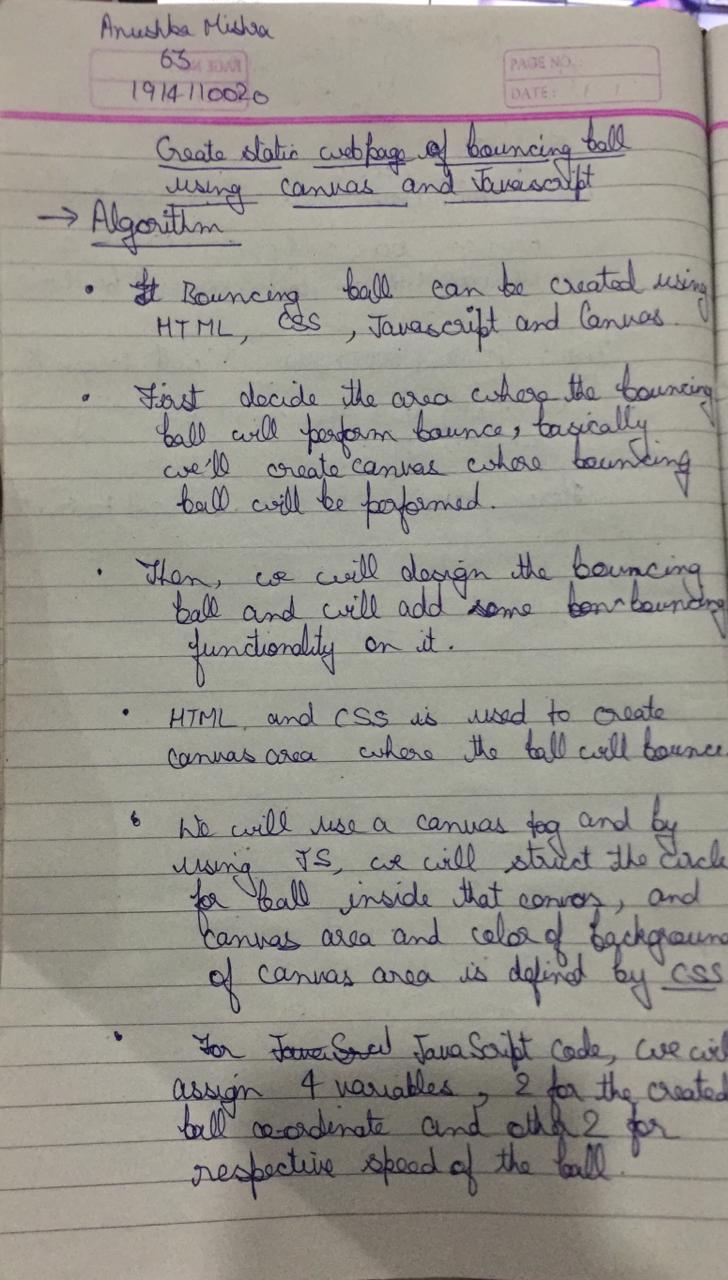 Anushka Mishra
63
1914110020
PAGE NO.:
DATE: / /
Create static webpage of bouncing ball
using canvas and Javascript
→ Algorithm
• Bouncing ball can be created using
HTML, CSS, Javascript and Canvas.
• First decide the area where the bouncing
ball will perform bounce, basically
we'll create canvas where bouncing
ball will be performed.
• Then, we will design the bouncing
ball and will add some bouncing
functionality on it.
• HTML and CSS is used to create
canvas area where the ball will bounce
• We will use a canvas tag and by
using JS, we will struct the circle
for ball inside that canvas, and
canvas area and color of background
of canvas area is defind by CSS
• For JavaScript code, we will
assign 4 variables, 2 for the created
ball co-ordinate and other 2 for
respective speed of the ball.